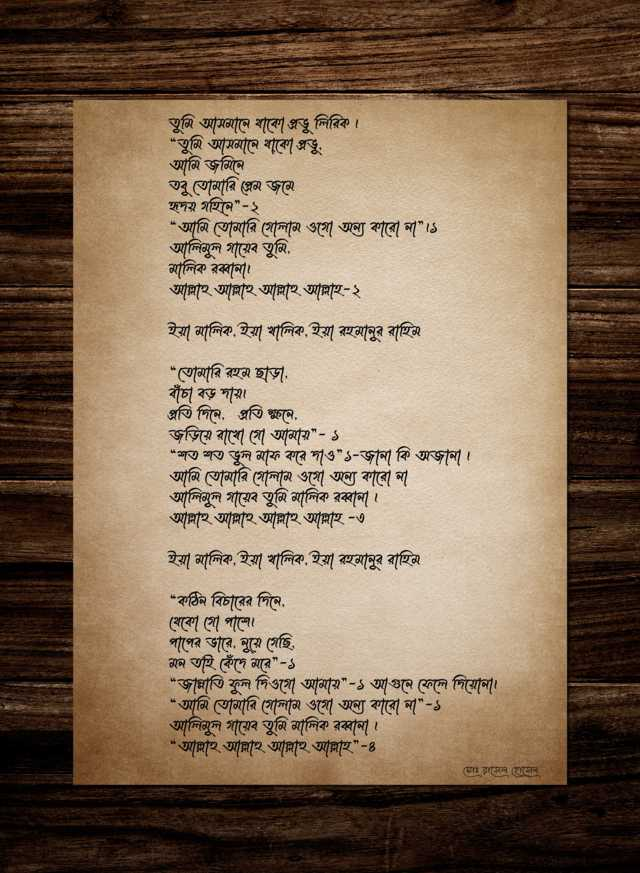 তুমি আসমানে থাকো প্রভু লিরিক ।
“তুমি আসমানে থাকো প্রভু,
আমি জমিনে
তবু তোমারি প্রেম জমে
হৃদয় গহিনে”-২
“আমি তোমারি গোলাম ওগো অন্য কারো না”।১
আলিমুল গায়েব তুমি,
মালিক রব্বানা।
আল্লাহ আল্লাহ আল্লাহ আল্লাহ-২
ইয়া মালিক, ইয়া খালিক, ইয়া রহমানুর রাহিম
“তোমারি রহম ছাড়া,
বাঁচা বড় দায়।
প্রতি দিনে, প্রতি ক্ষনে,
জড়িয়ে রাখো গো আমায়”- ১
“শত শত ভুল মাফ করে দাও”১-জানা কি অজানা ।
আমি তোমারি গোলাম ওগো অন্য কারো না
আলিমুল গায়েব তুমি মালিক রব্বানা ।
আল্লাহ আল্লাহ আল্লাহ আল্লাহ -৩
ইয়া মালিক, ইয়া খালিক, ইয়া রহমানুর রাহিম
“কঠিন বিচারের দিনে,
থেকো গো পাশে।
পাপের ভারে, নুয়ে গেছি,
মন তাই কেঁদে মরে”-১
“জান্নাতি ফুল দিওগো আমায়”-১ আগুনে ফেলে দিয়োনা।
“আমি তোমারি গোলাম ওগো অন্য কারো না”-১
আলিমুল গায়েব তুমি মালিক রব্বানা ।
“আল্লাহ আল্লাহ আল্লাহ আল্লাহ”-৪
মোঃ রাসেল হোসেন